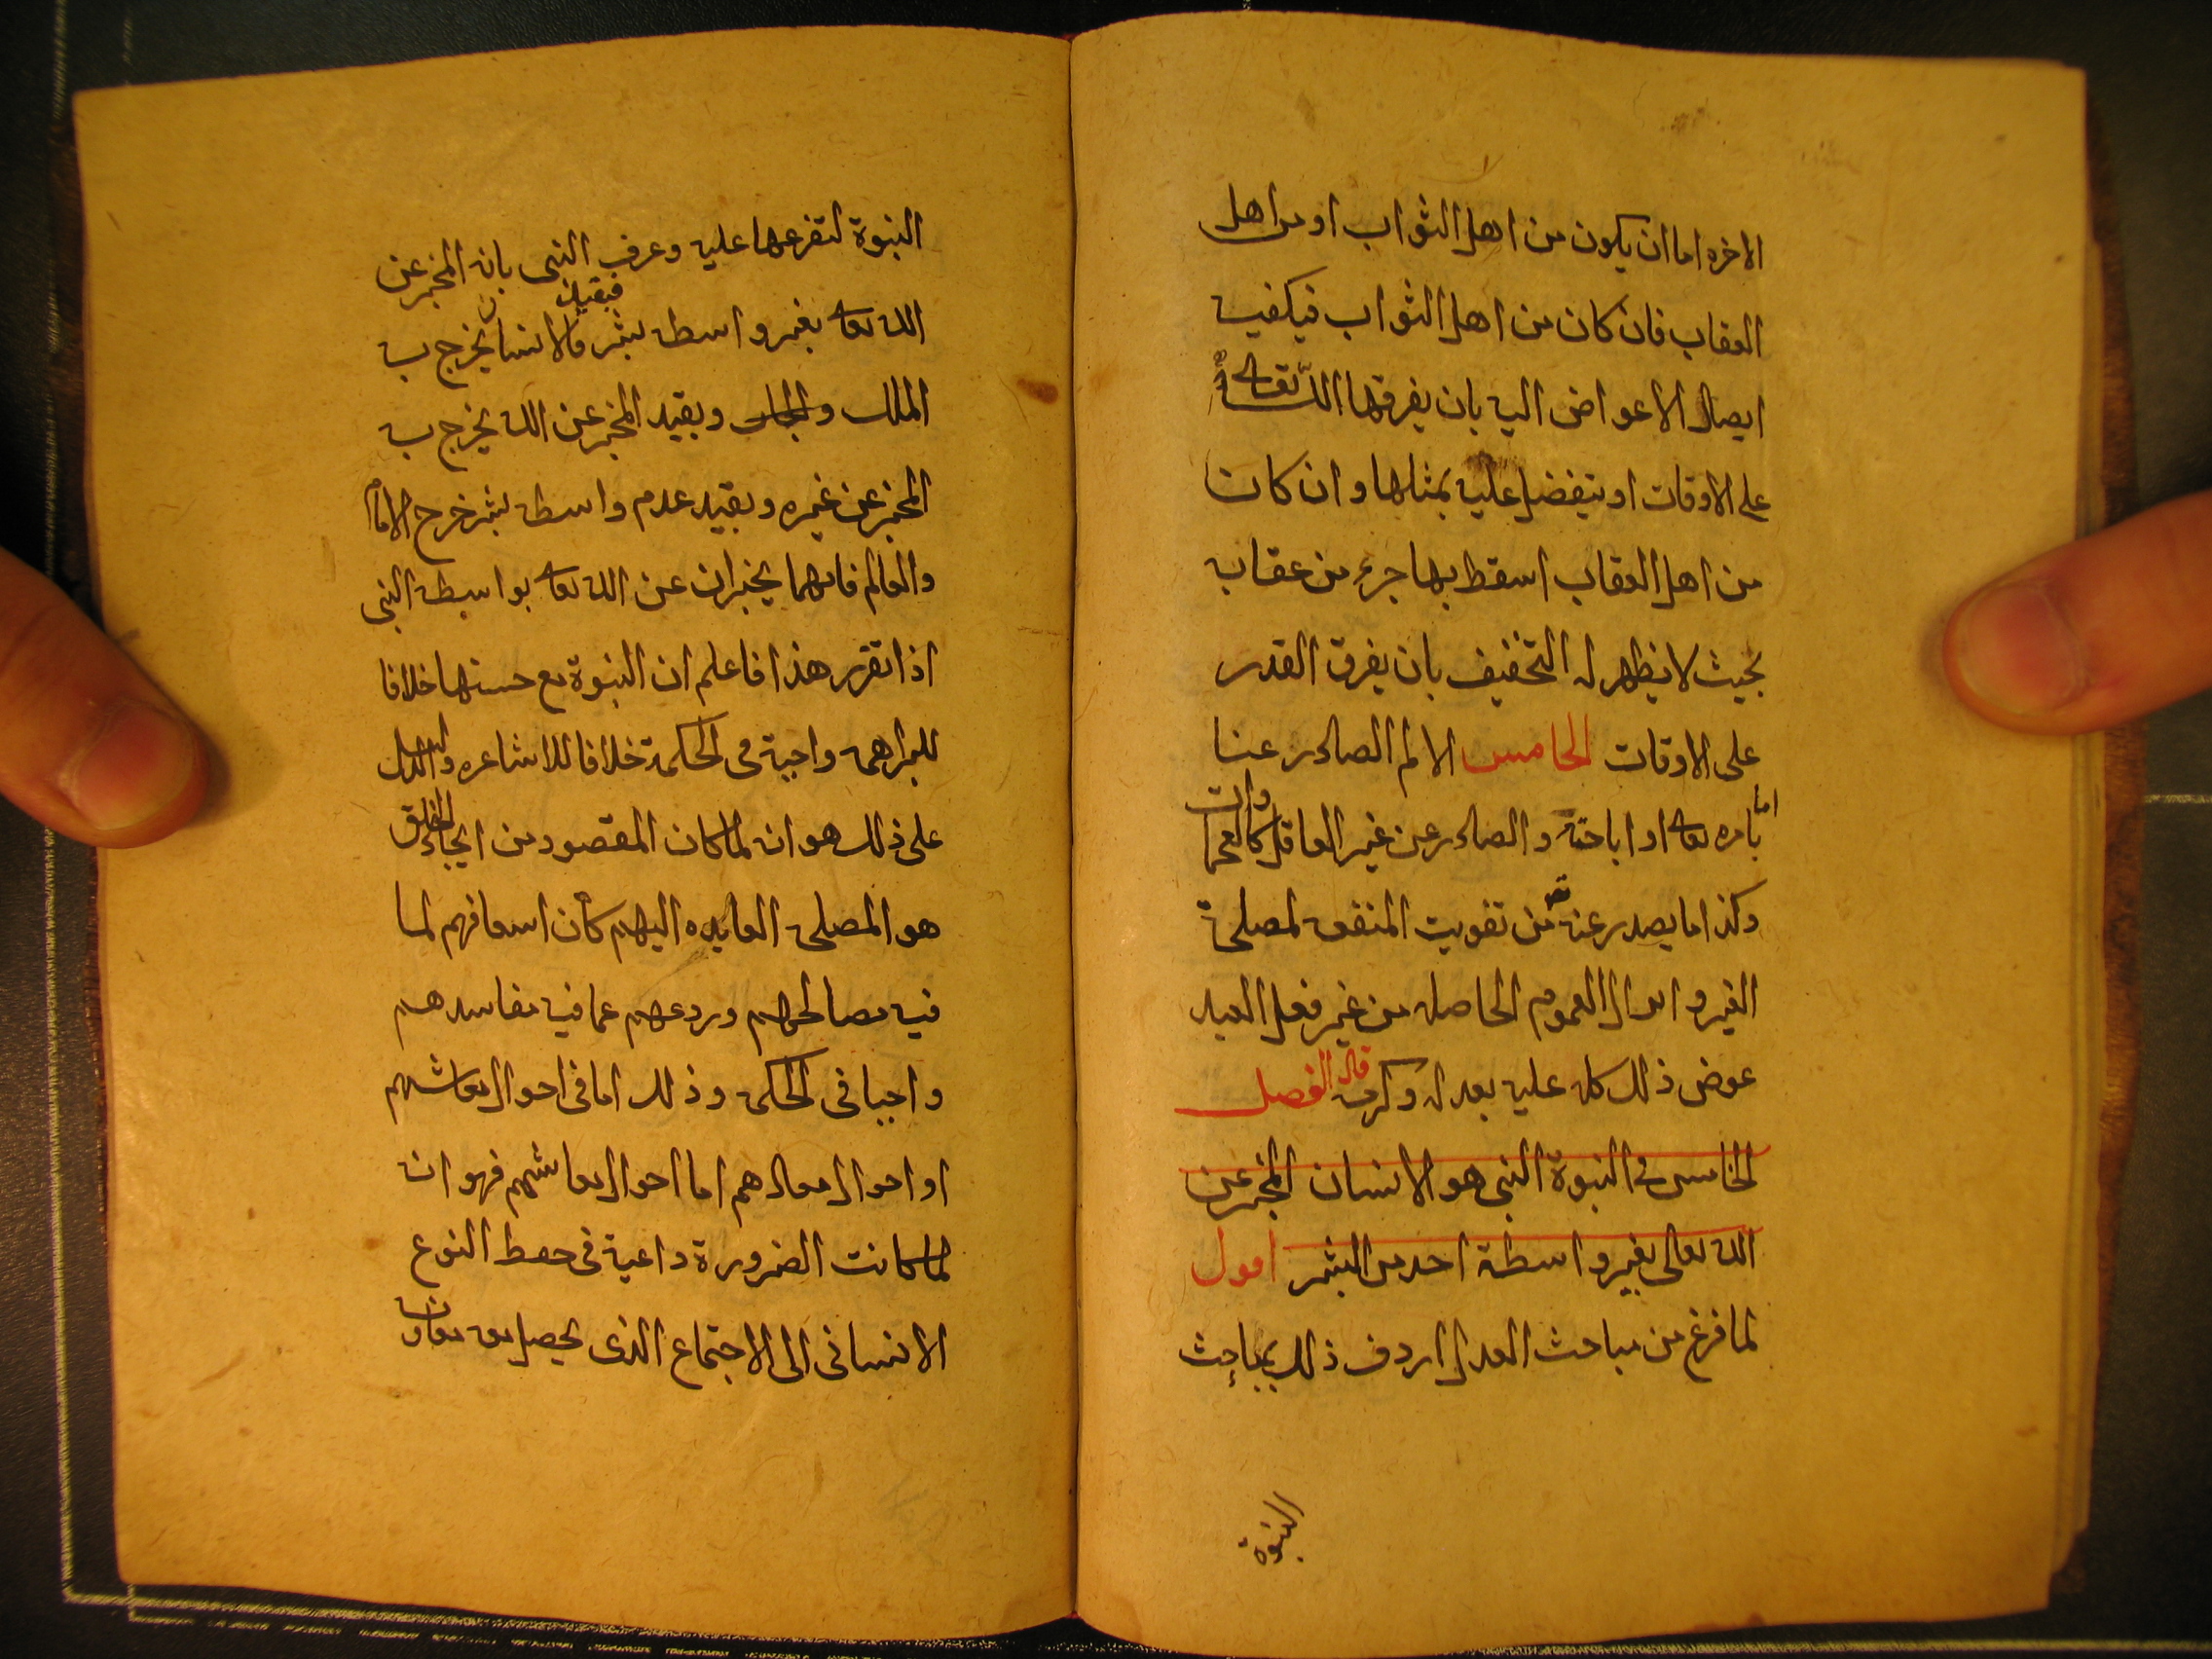 الاخره اما ان يكون من اهل الثواب او من اهل
العقاب فان كان من اهل الثواب فيكفيه
ايصال الاعواض اليه بان يفرقها الله تعالى
على الاوقات او يتفضل عليه بمثلها وان كان
من اهل العقاب اسقط بها جزء من عقابه
بحيث لا يظهر له التخفيف بان يفرق القدر
على الاوقات الخامس الالم الصادر عنا
اما بامره تعالى او اباحته والصادر عن غير العاقل كالعجماوات
وكذا ما يصدر عنه تع من تفويت المنفعه لمصلحة
الغير وانزال الغموم الحاصله من غير فعل العبد
عوض ذلك كله عليه بعدله وكرمه قال الفصل
الخامس في النبوة النبي هو الانسان المخبر عن
الله تعالى بغير واسطة احد من البشر اقول
لما فرغ من مباحث العدل اردف ذلك بمباحث
النبوة
النبوة لتفرعها عليه وعرف النبي بانه المخبر عن
الله تعالى بغير واسطه بشر فبقيد الانسان يخرج به
الملك وبقيد المخبر عن الله يخرج به
المخبر عن غيره وبقيد عدم واسطه بشر خرج الامام
والعالم فانهما يخبران عن الله تعالى بواسطه النبي
اذا تقرر هذا فاعلم ان النبوة مع حسنها خلافا
للبراهمه واجبة في الحكمة خلافا للاشاعره والدليل
على ذلك هو انه لما كان المقصود من ايجاد الخلق
هو المصلحه العايده اليهم كان اسعافهم لما
فيه مصالحهم وردعهم عما فيه مفاسدهم
واجبا في الحكمه وذلك اما في احوال معاشهم
او احوال معادهم اما احوال معاشهم فهو انه
لما كانت الضرورة داعية في حفظ النوع
الانساني الى الاجتماع الذي يحصل معه